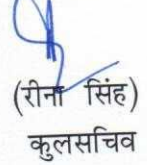 (रीना सिंह)
कुलसचिव